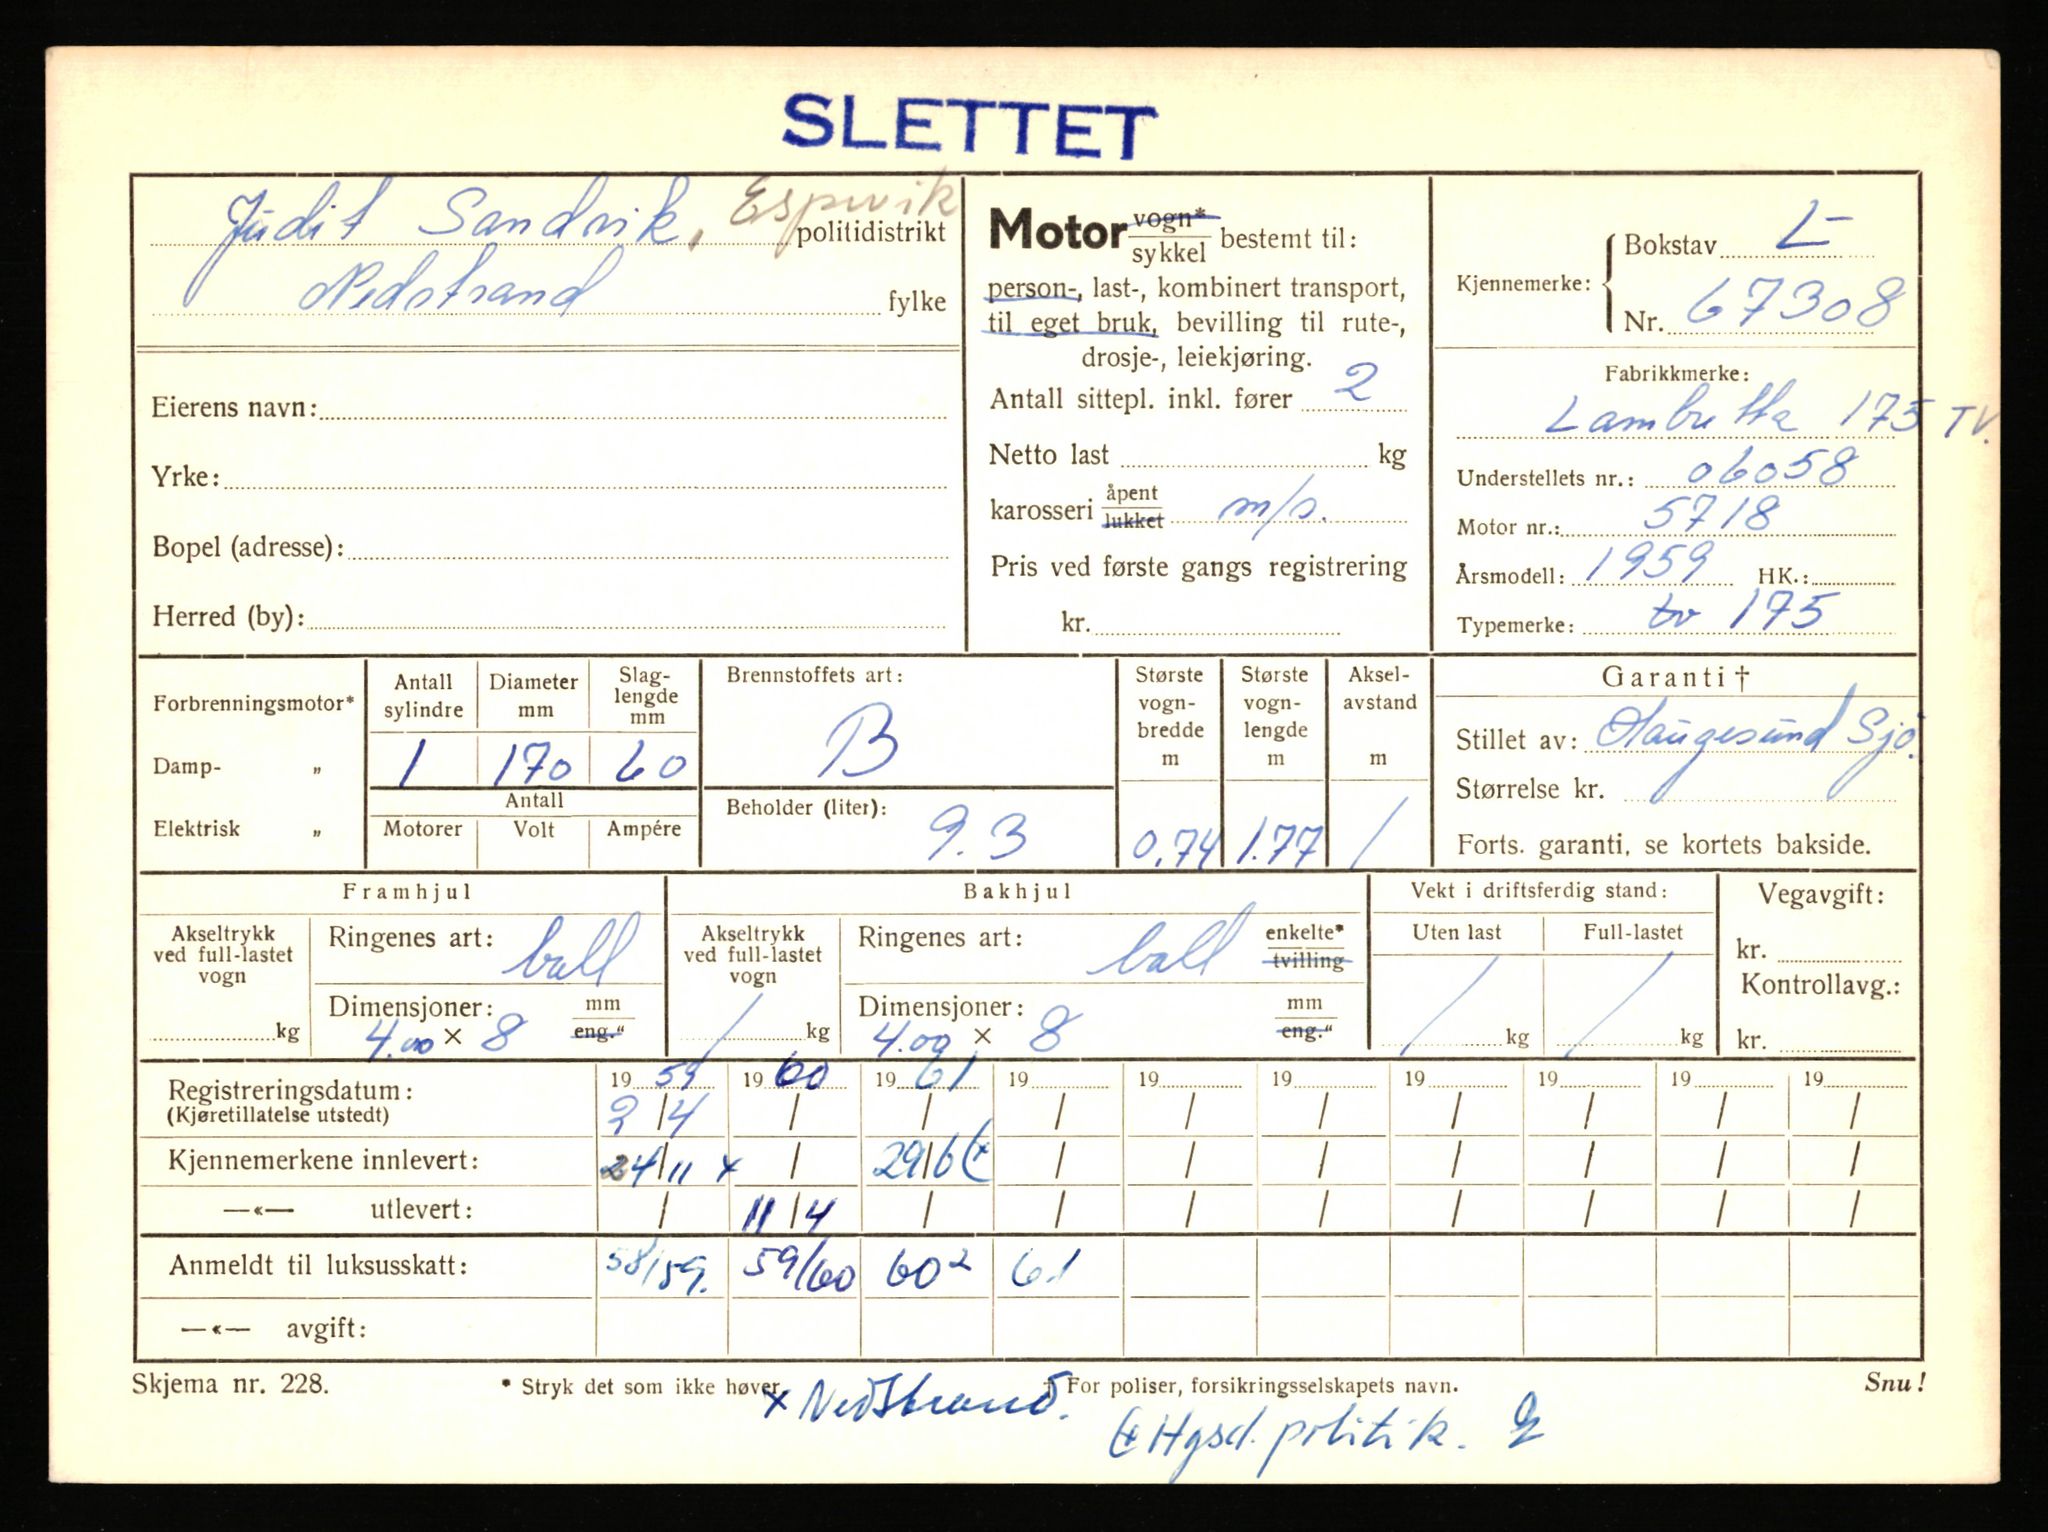 SLETTET
Judit Sandvik, Espevik politidistrikt
Nedstrand fylke
Eierens navn:
Yrke:
Bopel (adresse):
Herred (by):
Motor vogn* / sykkel bestemt til:
person-, last-, kombinert transport,
til eget bruk, bevilling til rute-,
drosje-, leiekjøring.
Antall sittepl. inkl. fører 2
Netto last kg
karosseri åpent / lukket m/s.
Pris ved første gangs registrering
kr.
Kjennemerke: Bokstav L-
Nr. 67308
Fabrikkmerke:
Lambretta 175 TV.
Understellets nr.: 06058
Motor nr.: 5718
Årsmodell: 1959 HK.:
Typemerke: tv 175
Forbrenningsmotor*
Damp- „
Elektrisk „
Antall sylindre 1
Diameter mm 170
Slag-lengde mm 60
Antall
Motorer Volt Ampére
Brennstoffets art:
B
Beholder (liter):
9.3
Største vogn-bredde m 0.74
Største vogn-lengde m 1.77
Aksel-avstand m /
Garanti †
Stillet av: Haugesund Sjø.
Størrelse kr.
Forts. garanti, se kortets bakside.
Framhjul
Akseltrykk ved full-lastet vogn
kg
Ringenes art: ball
Dimensjoner: mm / eng.“
4.00 × 8
Bakhjul
Akseltrykk ved full-lastet vogn
/ kg
Ringenes art: ball enkelte* / tvilling
Dimensjoner: mm / eng.“
4.00 × 8
Vekt i driftsferdig stand:
Uten last Full-lastet
/ kg / kg
Vegavgift:
kr.
Kontrollavg.:
kr.
Registreringsdatum: 1959 1960 1961 19 19 19 19 19 19 19
(Kjøretillatelse utstedt) 2/4 / / / / / / / / /
Kjennemerkene innlevert: 24/11 x / 29/6 (+ / / / / / / /
—«— utlevert: / 11/4 / / / / / / / /
Anmeldt til luksusskatt: 58/59. 59/60 60² 61
—«— avgift:
Skjema nr. 228. * Stryk det som ikke høver. † For poliser, forsikringsselskapets navn. Snu!
x Nedstrand.
(+ Hgsd. politik.